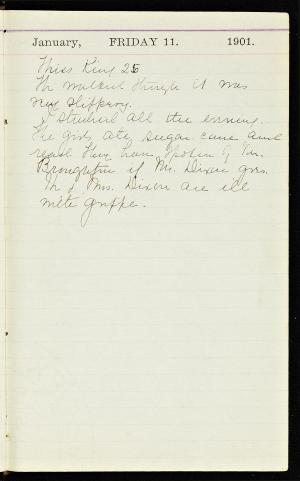 January, FRIDAY 11. 1901.
Miss King 25
We walked though it was
very slippery.
I studied all the evening.
The girls ate sugar cane and
read. They have spoken of Mr.
Broughton if Mr. Dixon goes.
Mr & Mrs. Dixon are ill
with grippe.